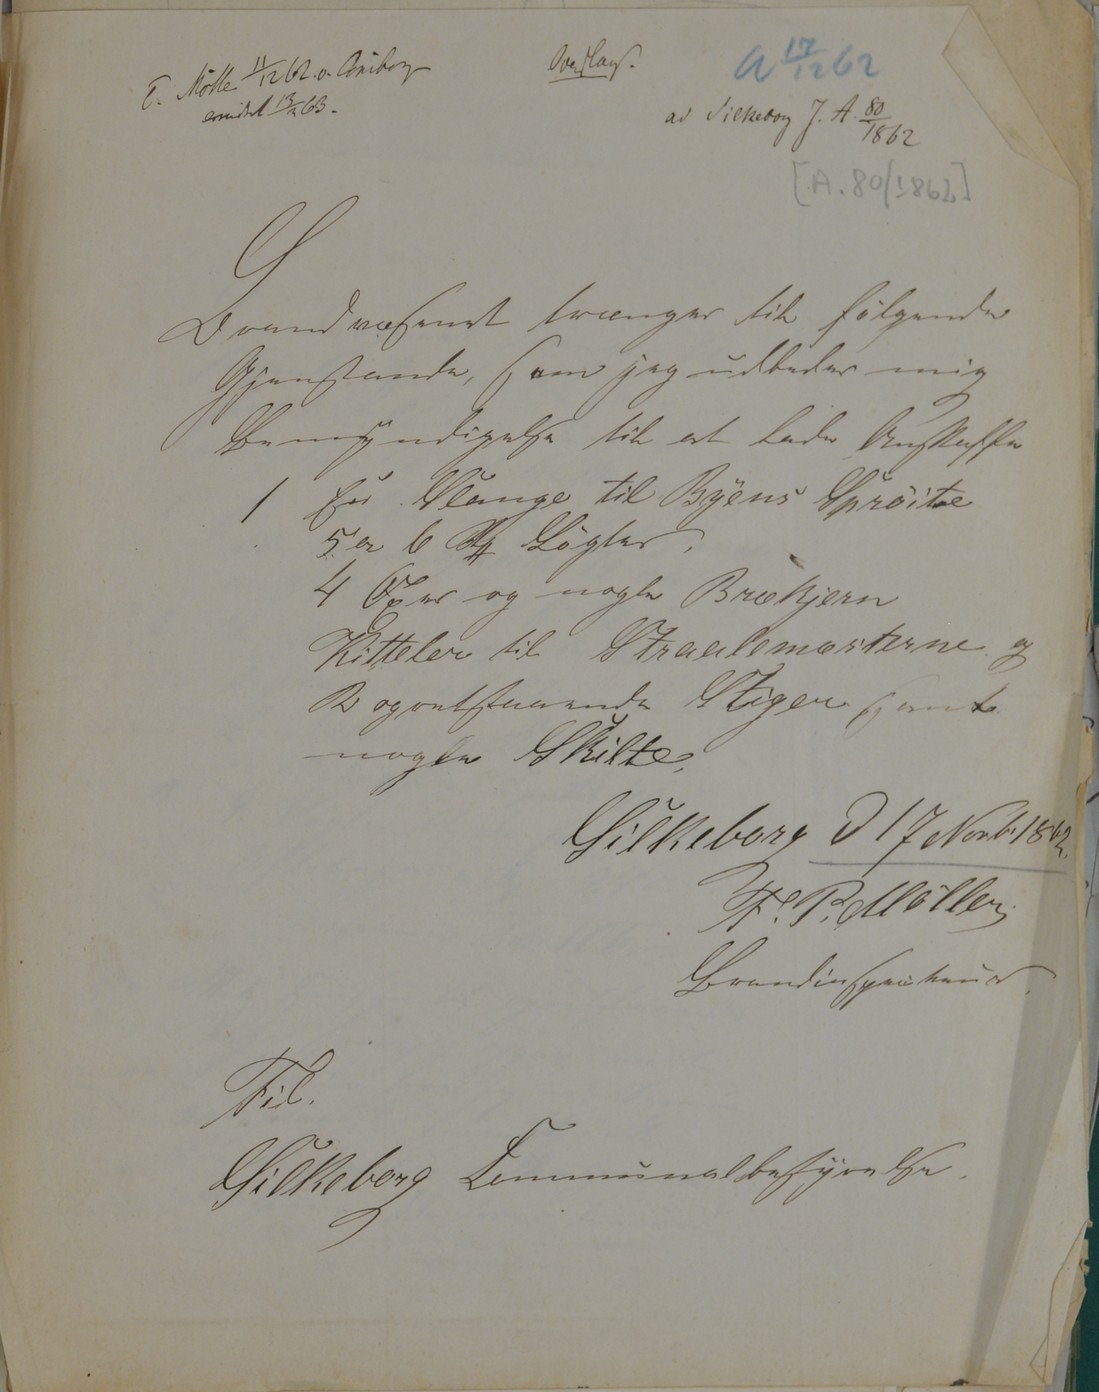 T. Mölle 11/12 62. v.
13/ 63.
Overslag.
A 17/12 62
ad Silkeborg J. A. 80/1862
[A. 80/1862]
Brandvæsenet trænger til følgende
Gjenstande, som jeg udbeder mig
Bemÿndigelse til at lade Anskaffe
1 Slange til Bÿens Spröite
5 a 6 Lögter.
4 Öxer og nogle Brækjern
Kitteler til Straalemesterne og
2 opretstaaende Stiger samt
nogle Skilte.
Silkeborg d 17 Novb. 1862.
F. P. Möller
Brandinspecteur.
Til.
Silkeborg Communalbestÿrelse.